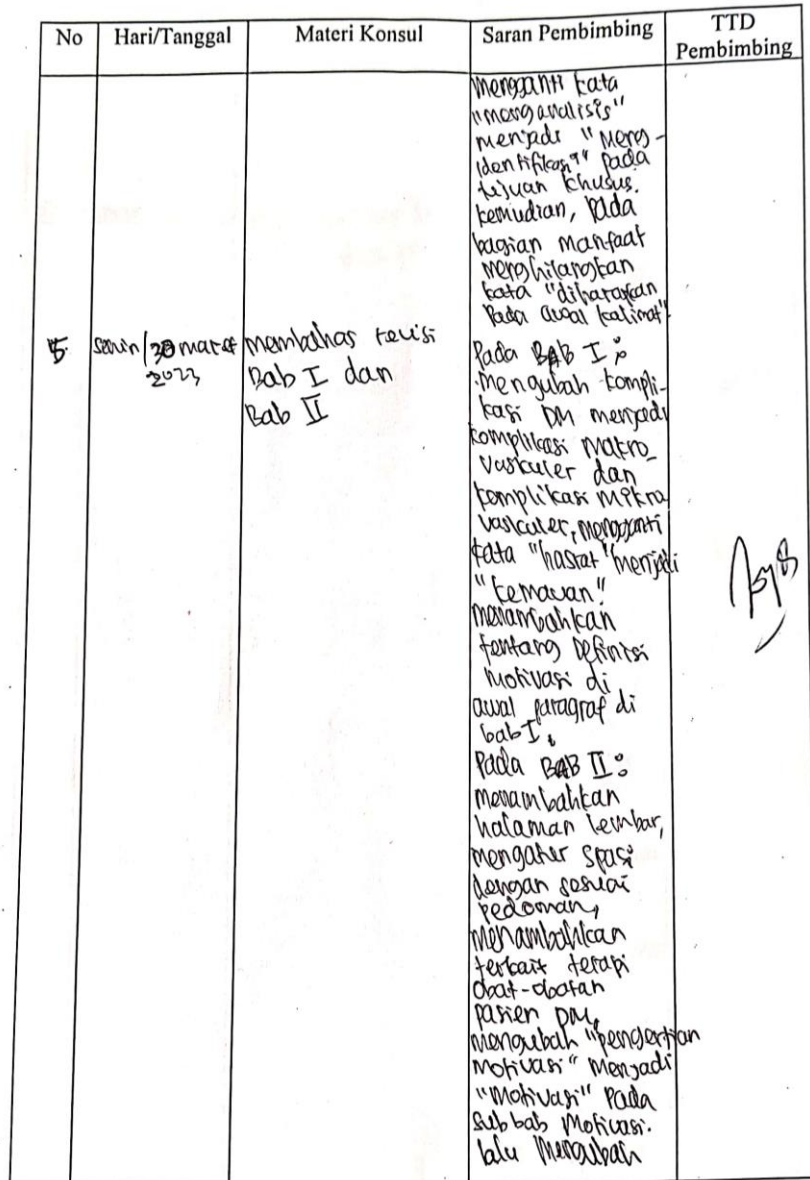 No Hari/Tanggal Materi Konsul Saran Pembimbing TTD Pembimbing
mengganti kata
"menganalisis"
menjadi "meng-
identifikasi" pada
tujuan khusus.
kemudian, pada
bagian manfaat
menghilangkan
kata "diharapkan
pada awal kalimat"
5. senin/30 maret
2023
membahas revisi
Bab I dan
Bab II
Pada BAB I :
Mengubah kompli-
kasi DM menjadi
komplikasi makro
vaskuler dan
komplikasi mikro
vaskuler, mengganti
kata "hasrat" menjadi
"kemauan"
menambahkan
tentang definisi
motivasi di
awal paragraf di
bab I.
Pada BAB II :
menambahkan
halaman lembar,
mengatur spasi
dengan sesuai
pedoman,
menambahkan
terkait terapi
obat-obatan
pasien DM,
mengubah "pengertian
motivasi" menjadi
"motivasi" pada
subbab motivasi.
lalu mengubah